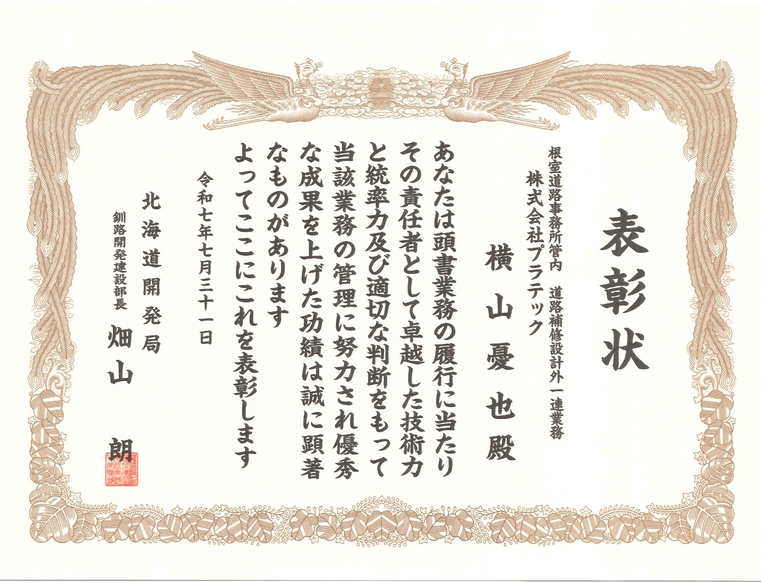 表彰状
根室道路事務所管内　道路補修設計外一連業務
株式会社プラテック
横山憂也殿
あなたは頭書業務の履行に当たり
その責任者として卓越した技術力
と統率力及び適切な判断をもって
当該業務の管理に努力され優秀
な成果を上げた功績は誠に顕著
なものがあります
よってここにこれを表彰します
令和七年七月三十一日
北海道開発局
釧路開発建設部長　畑山　朗